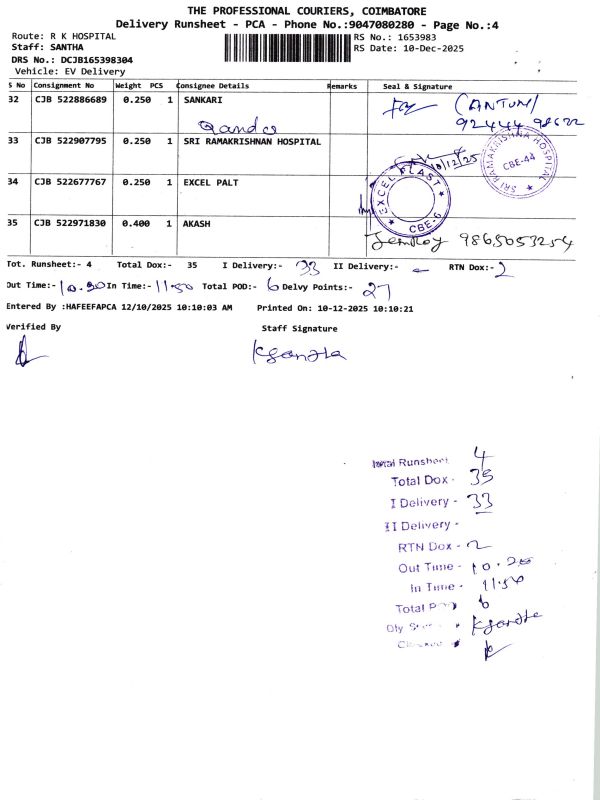 THE PROFESSIONAL COURIERS, COIMBATORE
Delivery Runsheet - PCA - Phone No.:9047080280 - Page No.:4
Route: R K HOSPITAL
RS No.: 1653983
Staff: SANTHA
RS Date: 10-Dec-2025
DRS No.: DCJB165398304
Vehicle: EV Delivery
S No Consignment No Weight PCS Consignee Details Remarks Seal & Signature
32 CJB 522886689 0.250 1 SANKARI
(ANTUM)
33 CJB 522907795 0.250 1 SRI RAMAKRISHNAN HOSPITAL
10/12/25
SRI RAMAKRISHNA HOSPITAL CBE-44
34 CJB 522677767 0.250 1 EXCEL PALT
EXCEL PLAST CBE-6
35 CJB 522971830 0.400 1 AKASH
9865053254
Tot. Runsheet:- 4 Total Dox:- 35 I Delivery:- 33 II Delivery:- - RTN Dox:- 2
Out Time:- 10.20 In Time:- 11.50 Total POD:- 6 Delvy Points:- 27
Entered By :HAFEEFAPCA 12/10/2025 10:10:03 AM Printed On: 10-12-2025 10:10:21
Verified By Staff Signature
Total Runsheet 4
Total Dox - 35
I Delivery - 33
II Delivery -
RTN Dox - 2
Out Time - 10.20
In Time - 11.50
Total POD 6